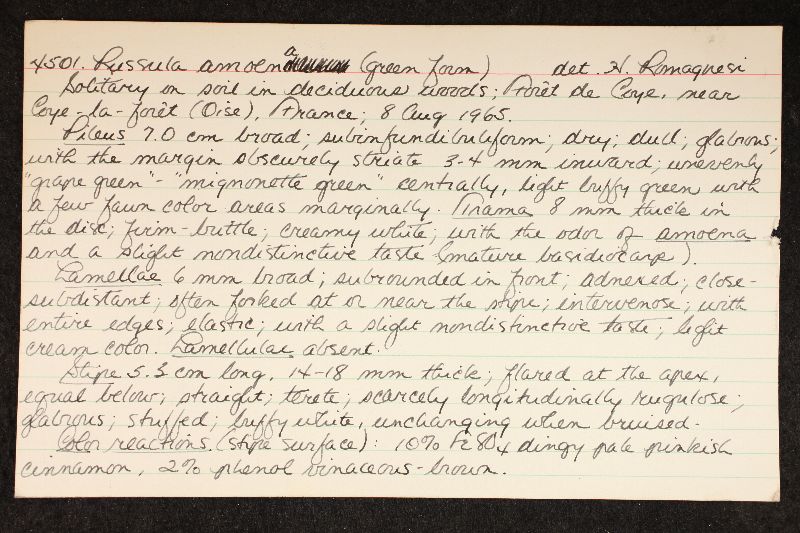 4501. Russula amoena (green form) det. H. Romagnesi
Solitary on soil in deciduous woods; Forêt de Coye, near
Coye-la-forêt (Oise), France; 8 Aug 1965.
Pileus 7.0 cm broad; subinfundibuliform; dry; dull; glabrous;
with the margin obscurely striate 3-4 mm inward; unevenly
"grape green" - "mignonette green" centrally, light buffy green with
a few fawn color areas marginally. Trama 8 mm thick in
the disc; firm-brittle; creamy white; with the odor of amoena
and a slight nondistinctive taste (mature basidiocarp).
Lamellae 6 mm broad; subrounded in front; adnexed; close-
subdistant; often forked at or near the stipe; intervenose; with
entire edges; elastic; with a slight nondistinctive taste; light
cream color. Lamellulae absent.
Stipe 5.3 cm long, 14-18 mm thick; flared at the apex,
equal below; straight; terete; scarcely longitudinally rugulose;
glabrous; stuffed; buffy white, unchanging when bruised.
Color reactions (stipe surface): 10% FeSO4 dingy pale pinkish
cinnamon, 2% phenol vinaceous-brown.